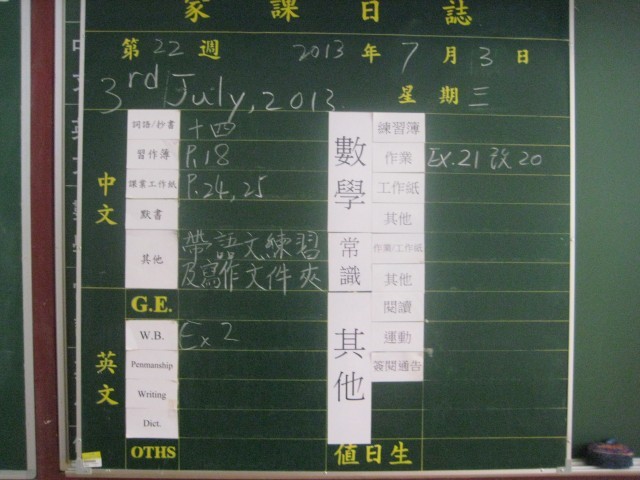 家課日誌
第 22 週 2013 年 7 月 3 日
3rd July, 2013 星期三
中文
詞語/抄書 十四
習作簿 P.18
課業工作紙 P.24, 25
默書
其他 帶語文練習
及寫作文件夾
英文
G.E.
W.B. Ex 2
Penmanship
Writing
Dict.
OTHS
數學
練習簿
作業 Ex.21 改 20
工作紙
其他
常識
作業/工作紙
其他
其他
閱讀
運動
簽閱通告
值日生